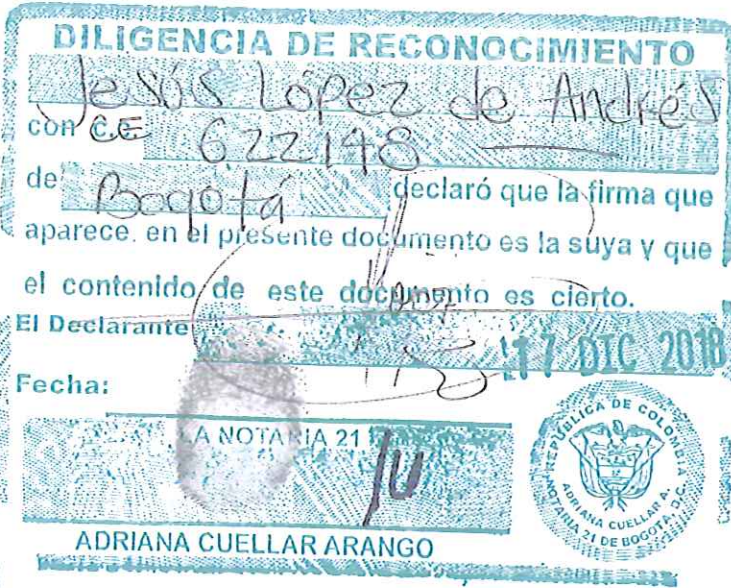 DILIGENCIA DE RECONOCIMIENTO
Jesús López de Andrés
con C.E 622148
de Bogotá declaró que la firma que
aparece en el presente documento es la suya y que
el contenido de este documento es cierto.
El Declarante
17 DIC 2018
Fecha:
LA NOTARIA 21
ADRIANA CUELLAR ARANGO
REPÚBLICA DE COLOMBIA
ADRIANA CUELLAR A.
NOTARIA 21 DE BOGOTÁ D.C.